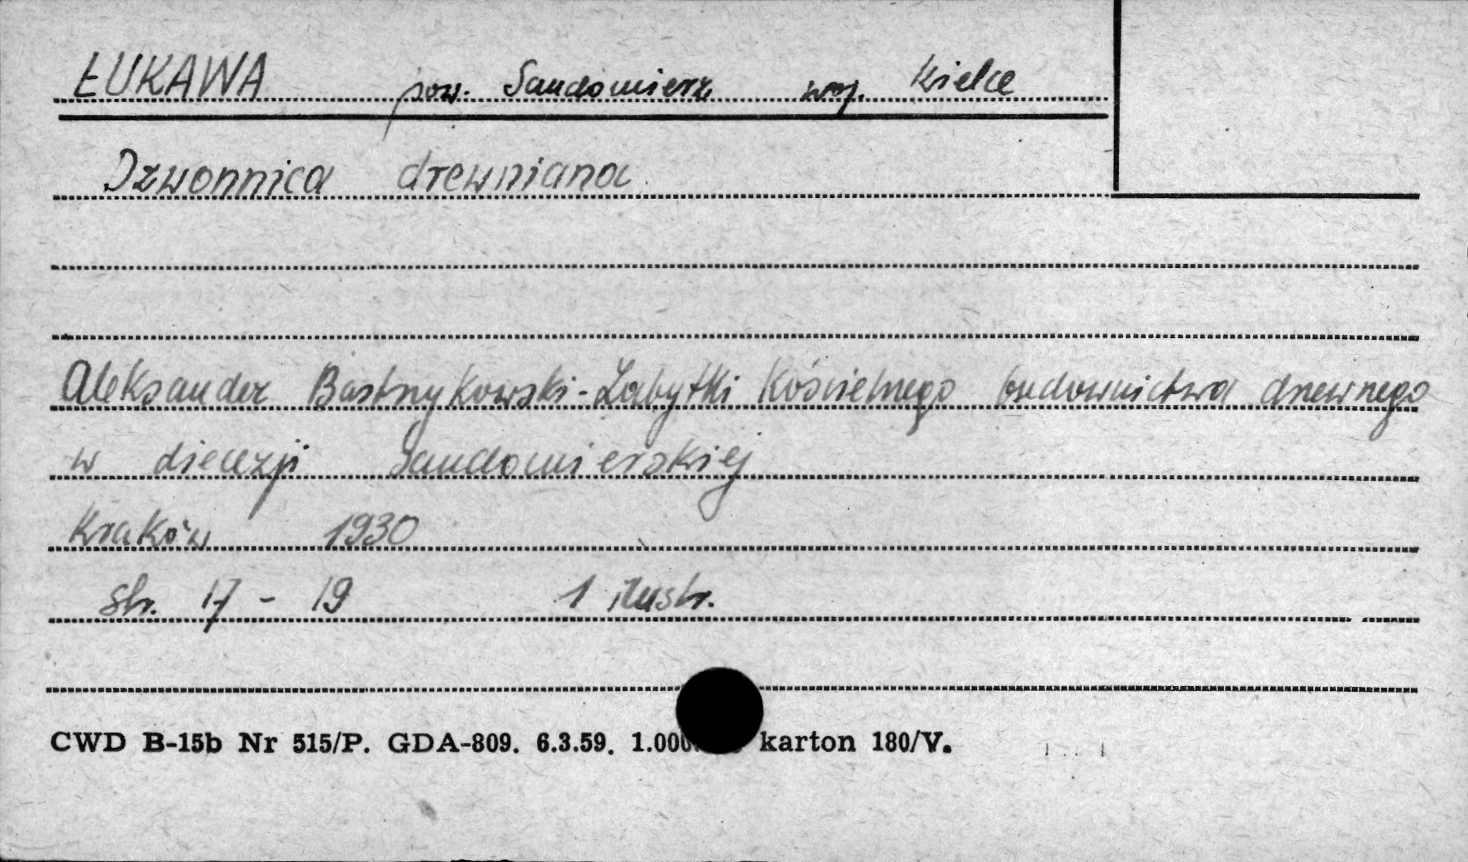 ŁUKAWA pow. Sandomierz woj. Kielce
Dzwonnica drewniana
Aleksander Bastrzykowski - Zabytki Kościelnego budownictwa drewnego
w diecezji Sandomierskiej
Kraków 1930
str. 17 - 19 1 ilustr.
CWD B-15b Nr 515/P. GDA-809. 6.3.59. karton 180/V.